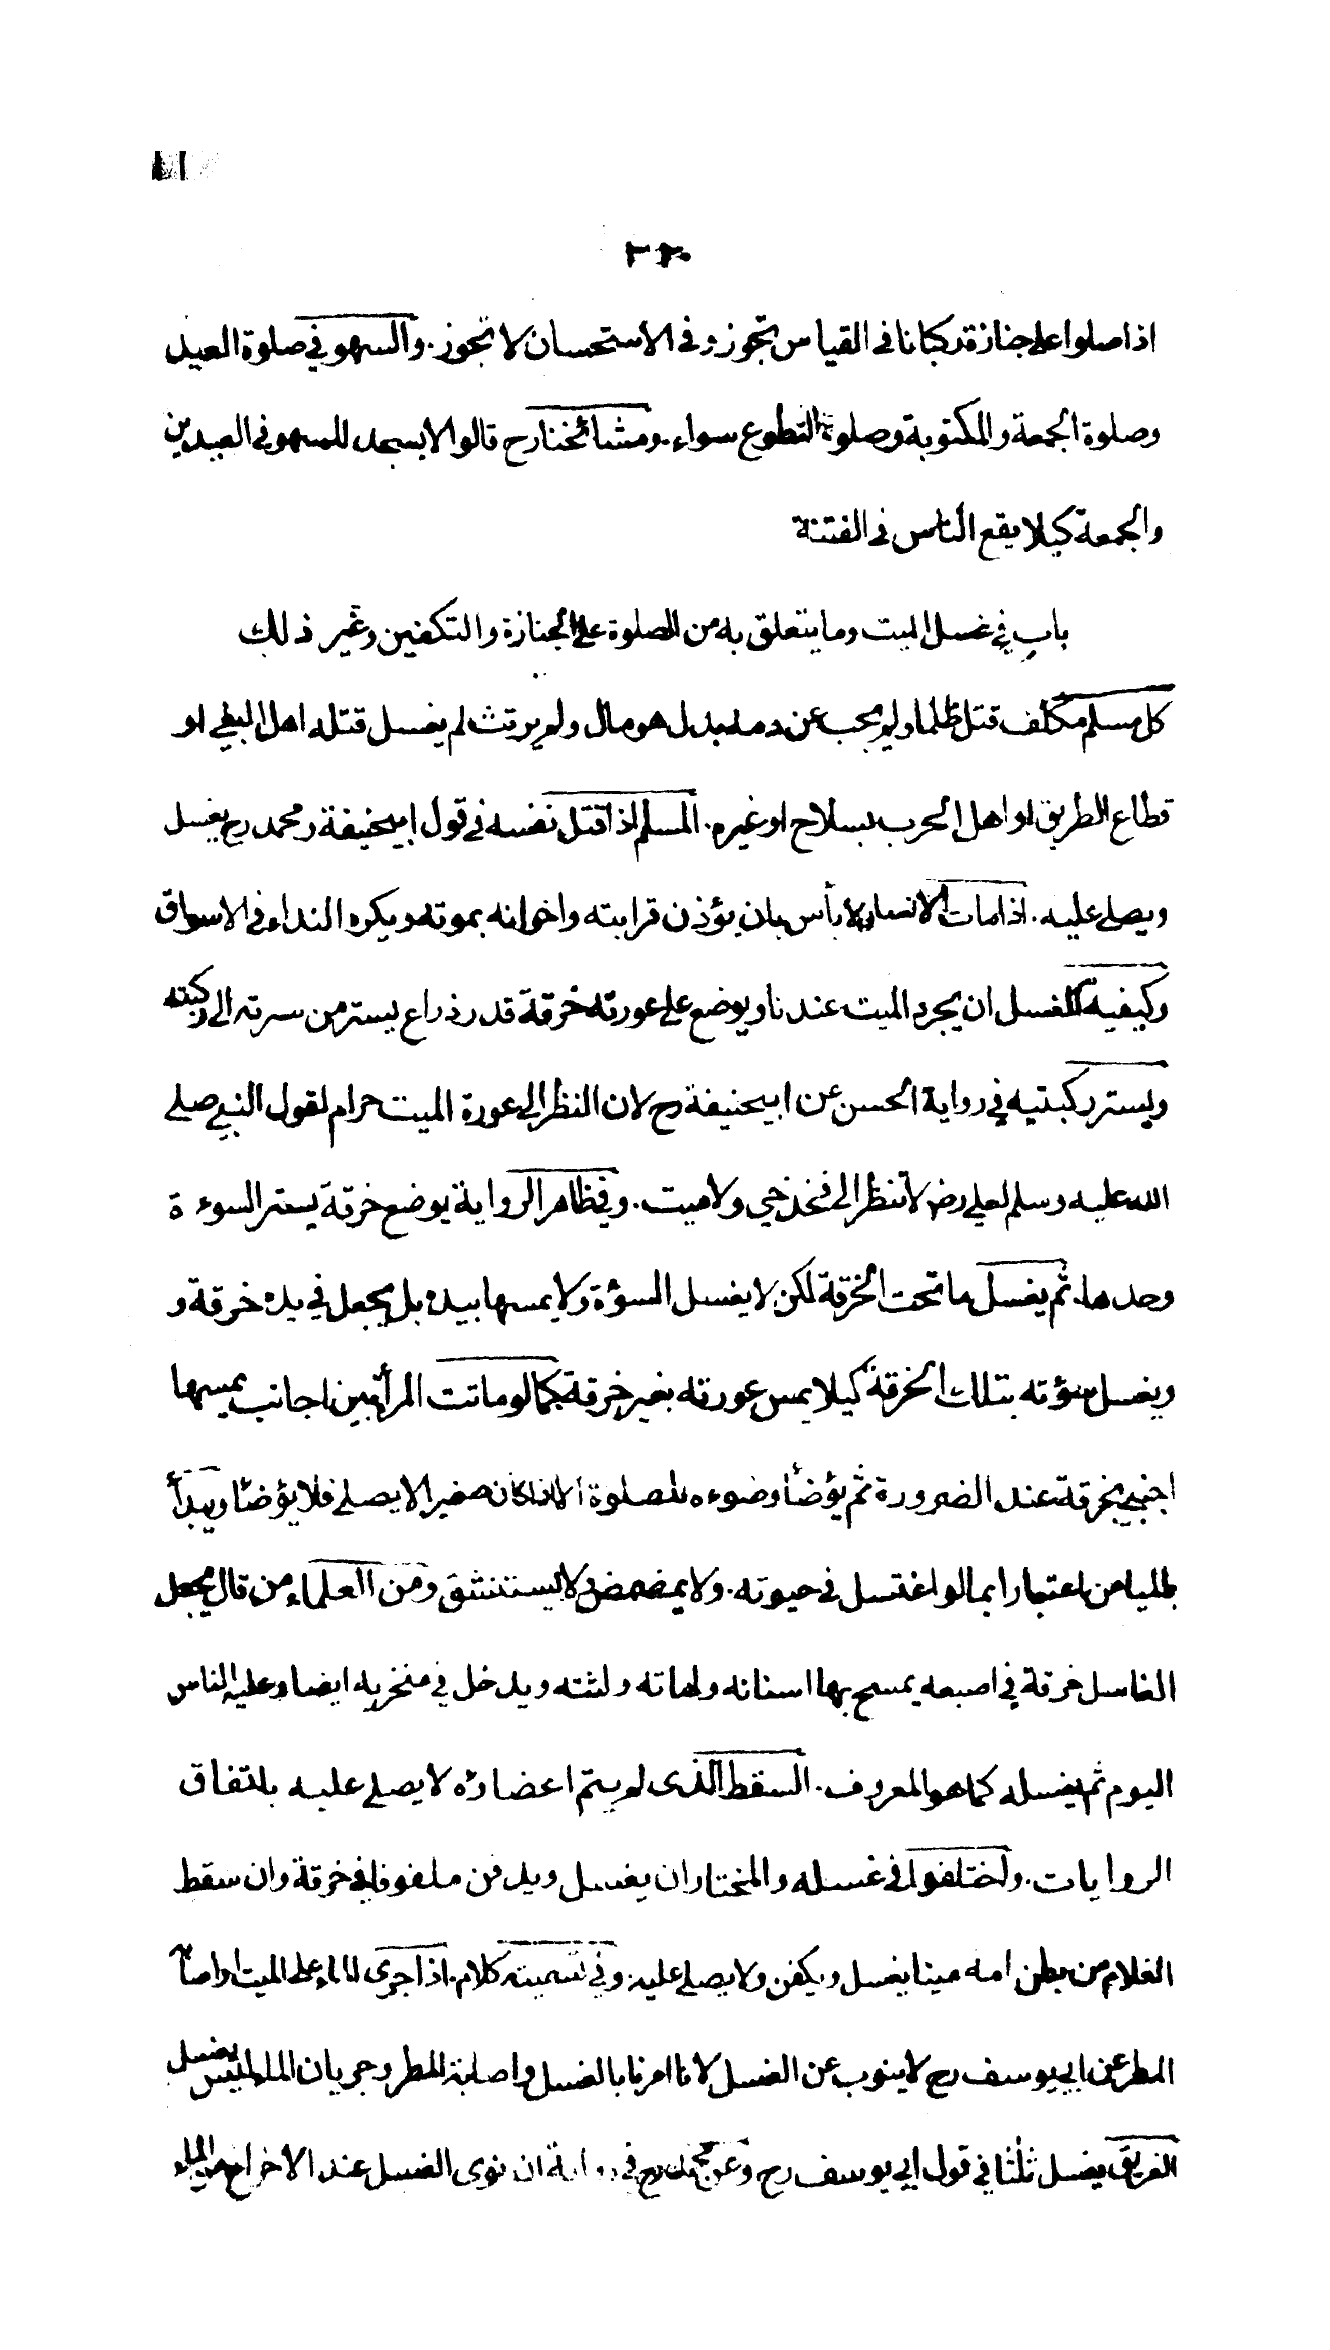 ٢٢٠
اذا صلوا على جنازة ركبانا فى القياس تجوز وفى الاستحسان لا تجوز. والسهو فى صلوة العيد
وصلوة الجمعة والمكتوبة وصلوة التطوع سواء. ومشائخنا رح قالوا لا يسجد للسهو فى العيدين
والجمعة كيلا يقع الناس فى الفتنة
باب فى غسل الميت وما يتعلق به من الصلوة على الجنازة والتكفين وغير ذلك
كل مسلم مكلف قتل ظلما ولم يجب عن دمه بدل هو مال ولم يرتث لم يغسل قتله اهل البغى او
قطاع الطريق او اهل الحرب بسلاح او غيره. المسلم اذا قتل نفسه فى قول ابيحنيفة ومحمد رح يغسل
ويصلى عليه. اذا مات الانسان لا بأس بان يؤذن قرابته واخوانه بموته ويكره النداء فى الاسواق
وكيفية الغسل ان يجرد الميت عندنا ويوضع على عورته خرقة قدر ذراع يستر من سرته الى ركبته
ويستر ركبتيه فى رواية الحسن عن ابيحنيفة رح لان النظر الى عورة الميت حرام لقول النبى صلى
الله عليه وسلم لعلى رض لا تنظر الى فخذ حى ولا ميت. وفى ظاهر الرواية يوضع خرقة يستر السوءة
وحدها. ثم يغسل ما تحت الخرقة لكن لا يغسل السؤة ولا يمسها بيده بل يجعل فى يده خرقة و
ويغسل سؤته بتلك الخرقة كيلا يمس عورته بغير خرقة كما لو ماتت المرأة بين اجانب يمسها
اجنبى بخرقة عند الضرورة ثم يؤضأ وضوءه للصلوة الا اذا كان صغيرا لا يصلى فلا يؤضأ ويبدأ
بالميامن اعتبارا بما لو اغتسل فى حيوته. ولا يمضمض ولا يستنشق ومن العلماء من قال يجعل
الغاسل خرقة فى اصبعه يمسح بها اسنانه ولهاته ولثته ويدخل فى منخريه ايضا وعليه الناس
اليوم ثم يغسله كما هو المعروف. السقط الذى لم يتم اعضاؤه لا يصلى عليه باتفاق
الروايات. واختلفوا فى غسله والمختار ان يغسل ويدفن ملفوفا فى خرقة وان سقط
الغلام من بطن امه ميتا يغسل ويكفن ولا يصلى عليه وفى تسميته كلام. اذا جرى الماء على الميت او اصابه
المطر عن ابى يوسف رح لا ينوب عن الغسل لانا امرنا بالغسل واصابة المطر وجريان الماء ليس بغسل
الغريق يغسل ثلثا فى قول ابى يوسف رح وعن محمد رح فى رواية ان نوى الغسل عند الاخراج من الماء